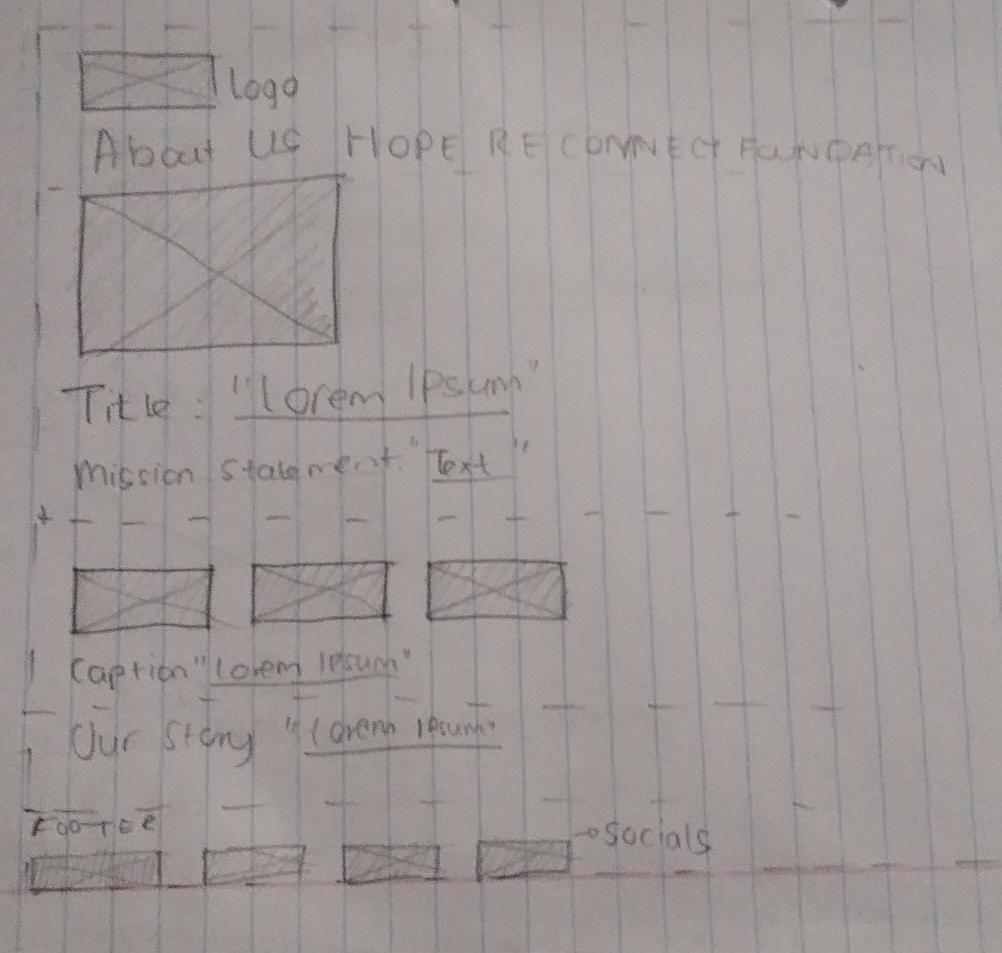 Logo
About Us HOPE RECONNECT FOUNDATION
Title: "Lorem Ipsum"
Mission Statement: "Text"
Caption "Lorem Ipsum"
Our Story "Lorem Ipsum"
FOOTER
Socials